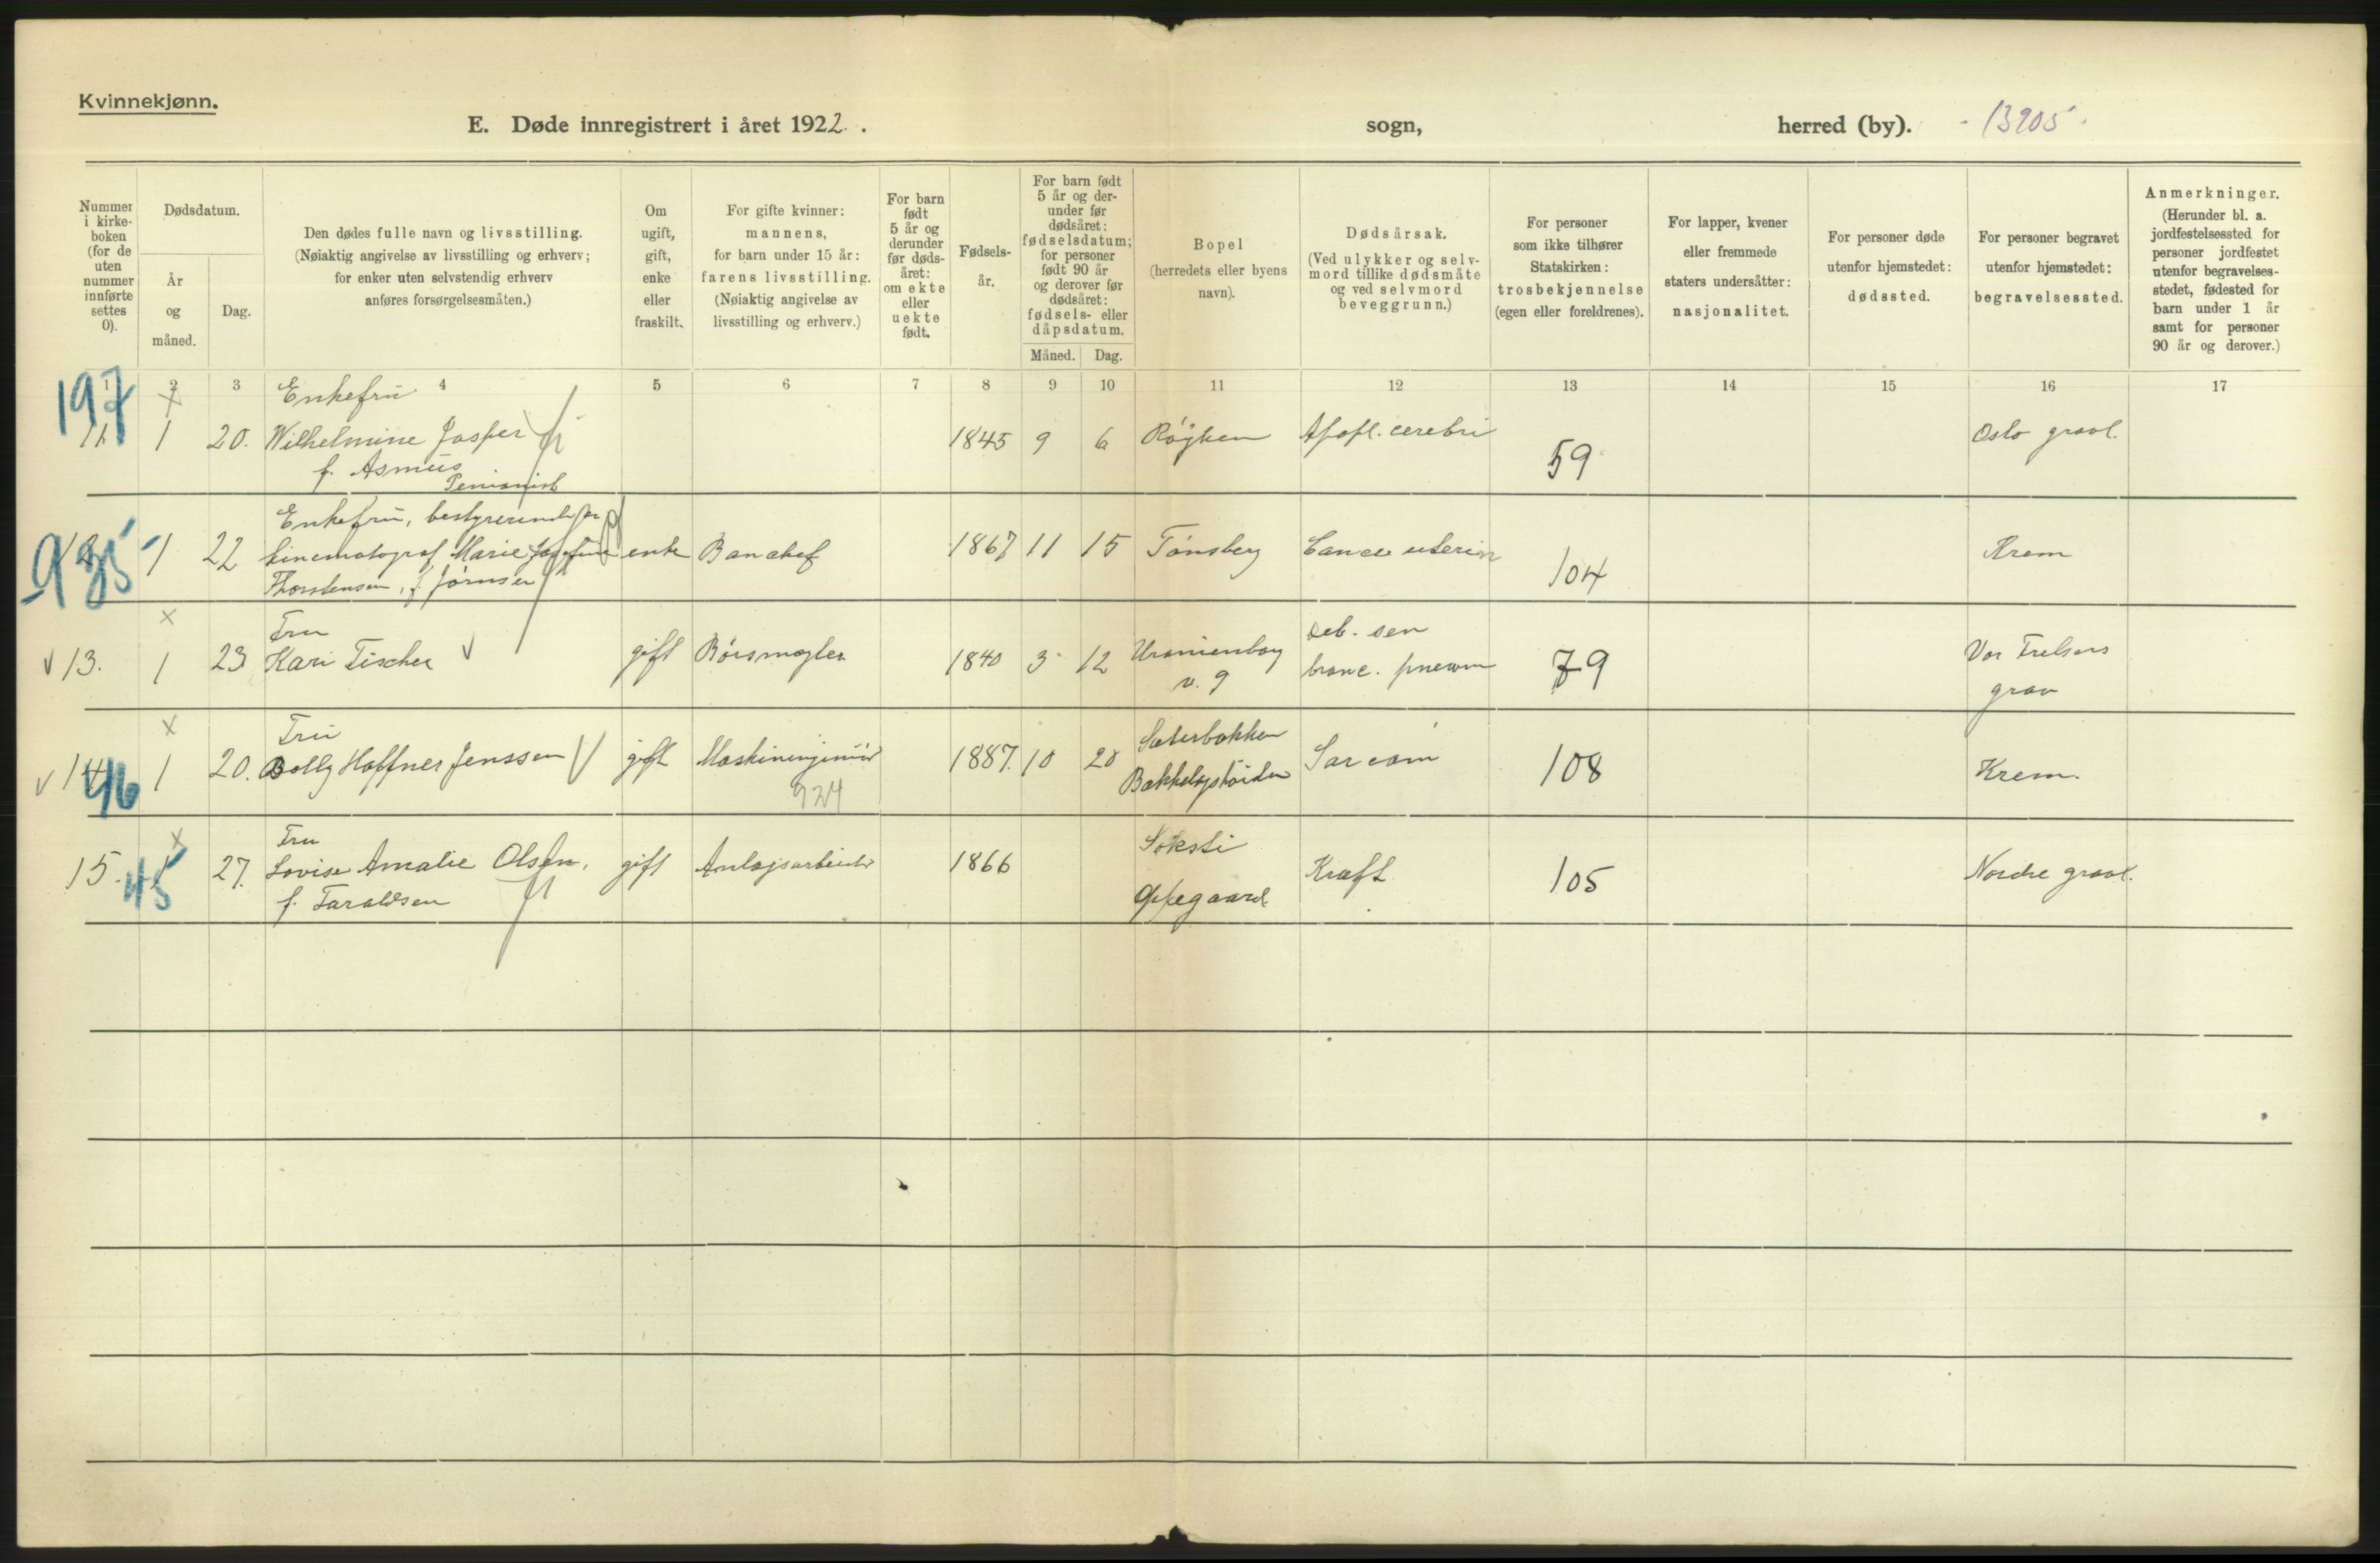 Kvinnekjønn.
E. Døde innregistrert i året 1922. sogn, herred (by). - 13205 -
Nummer i kirke-boken (for de uten nummer innførte settes 0).
Dødsdatum.
År og måned.
Dag.
Den dødes fulle navn og livsstilling.
(Nøiaktig angivelse av livsstilling og erhverv;
for enker uten selvstendig erhverv
anføres forsørgelsesmåten.)
Om ugift, gift, enke eller fraskilt.
For gifte kvinner:
mannens,
for barn under 15 år:
farens livsstilling.
(Nøiaktig angivelse av
livsstilling og erhverv.)
For barn født 5 år og derunder før døds-året: om ekte eller uekte født.
Fødsels-år.
For barn født 5 år og der-under før dødsåret: fødselsdatum; for personer født 90 år og derover før dødsåret: fødsels- eller dåpsdatum.
Måned. Dag.
Bopel
(herredets eller byens
navn).
Dødsårsak.
(Ved ulykker og selv-
mord tillike dødsmåte
og ved selvmord
beveggrunn.)
For personer
som ikke tilhører
Statskirken:
trosbekjennelse
(egen eller foreldrenes).
For lapper, kvener
eller fremmede
staters undersåtter:
nasjonalitet.
For personer døde
utenfor hjemstedet:
dødssted.
For personer begravet
utenfor hjemstedet:
begravelsessted.
Anmerkninger.
(Herunder bl. a.
jordfestelsessted for
personer jordfestet
utenfor begravelses-
stedet, fødested for
barn under 1 år
samt for personer
90 år og derover.)
1 2 3 4 5 6 7 8 9 10 11 12 13 14 15 16 17
197
Enkefru
1 20. Wilhelmine Jasper 1845 9 6 Røyken Apopl. cerebri 59 Oslo gravl.
f. Asmus
Pensionist
935
Enkefru, bestyrerinde for
1 22 kinematograf Marie Josefine enke Banchef 1867 11 15 Tønsberg Cancer uterin 104 Krem
Thorstensen, f. Jørnsen
Fru
13. 1 23 Kari Fischer gift Børsmægler 1840 3 12 Uranienborg v. 9 Deb. sen bronc. pneum 79 Vor Frelsers grav
Fru
14 46 1 20. Bolly Haffner Jenssen gift Maskiningeniør 1887. 10 20 Sæterbakken Bækkelagshøiden Sarcom 108 Krem.
924
Fru
15. 45 27. Lovise Amalie Olsen, gift Anlægsarbeider 1866 Kræft 105 Nordre gravl.
f. Taraldsen Oppegaard